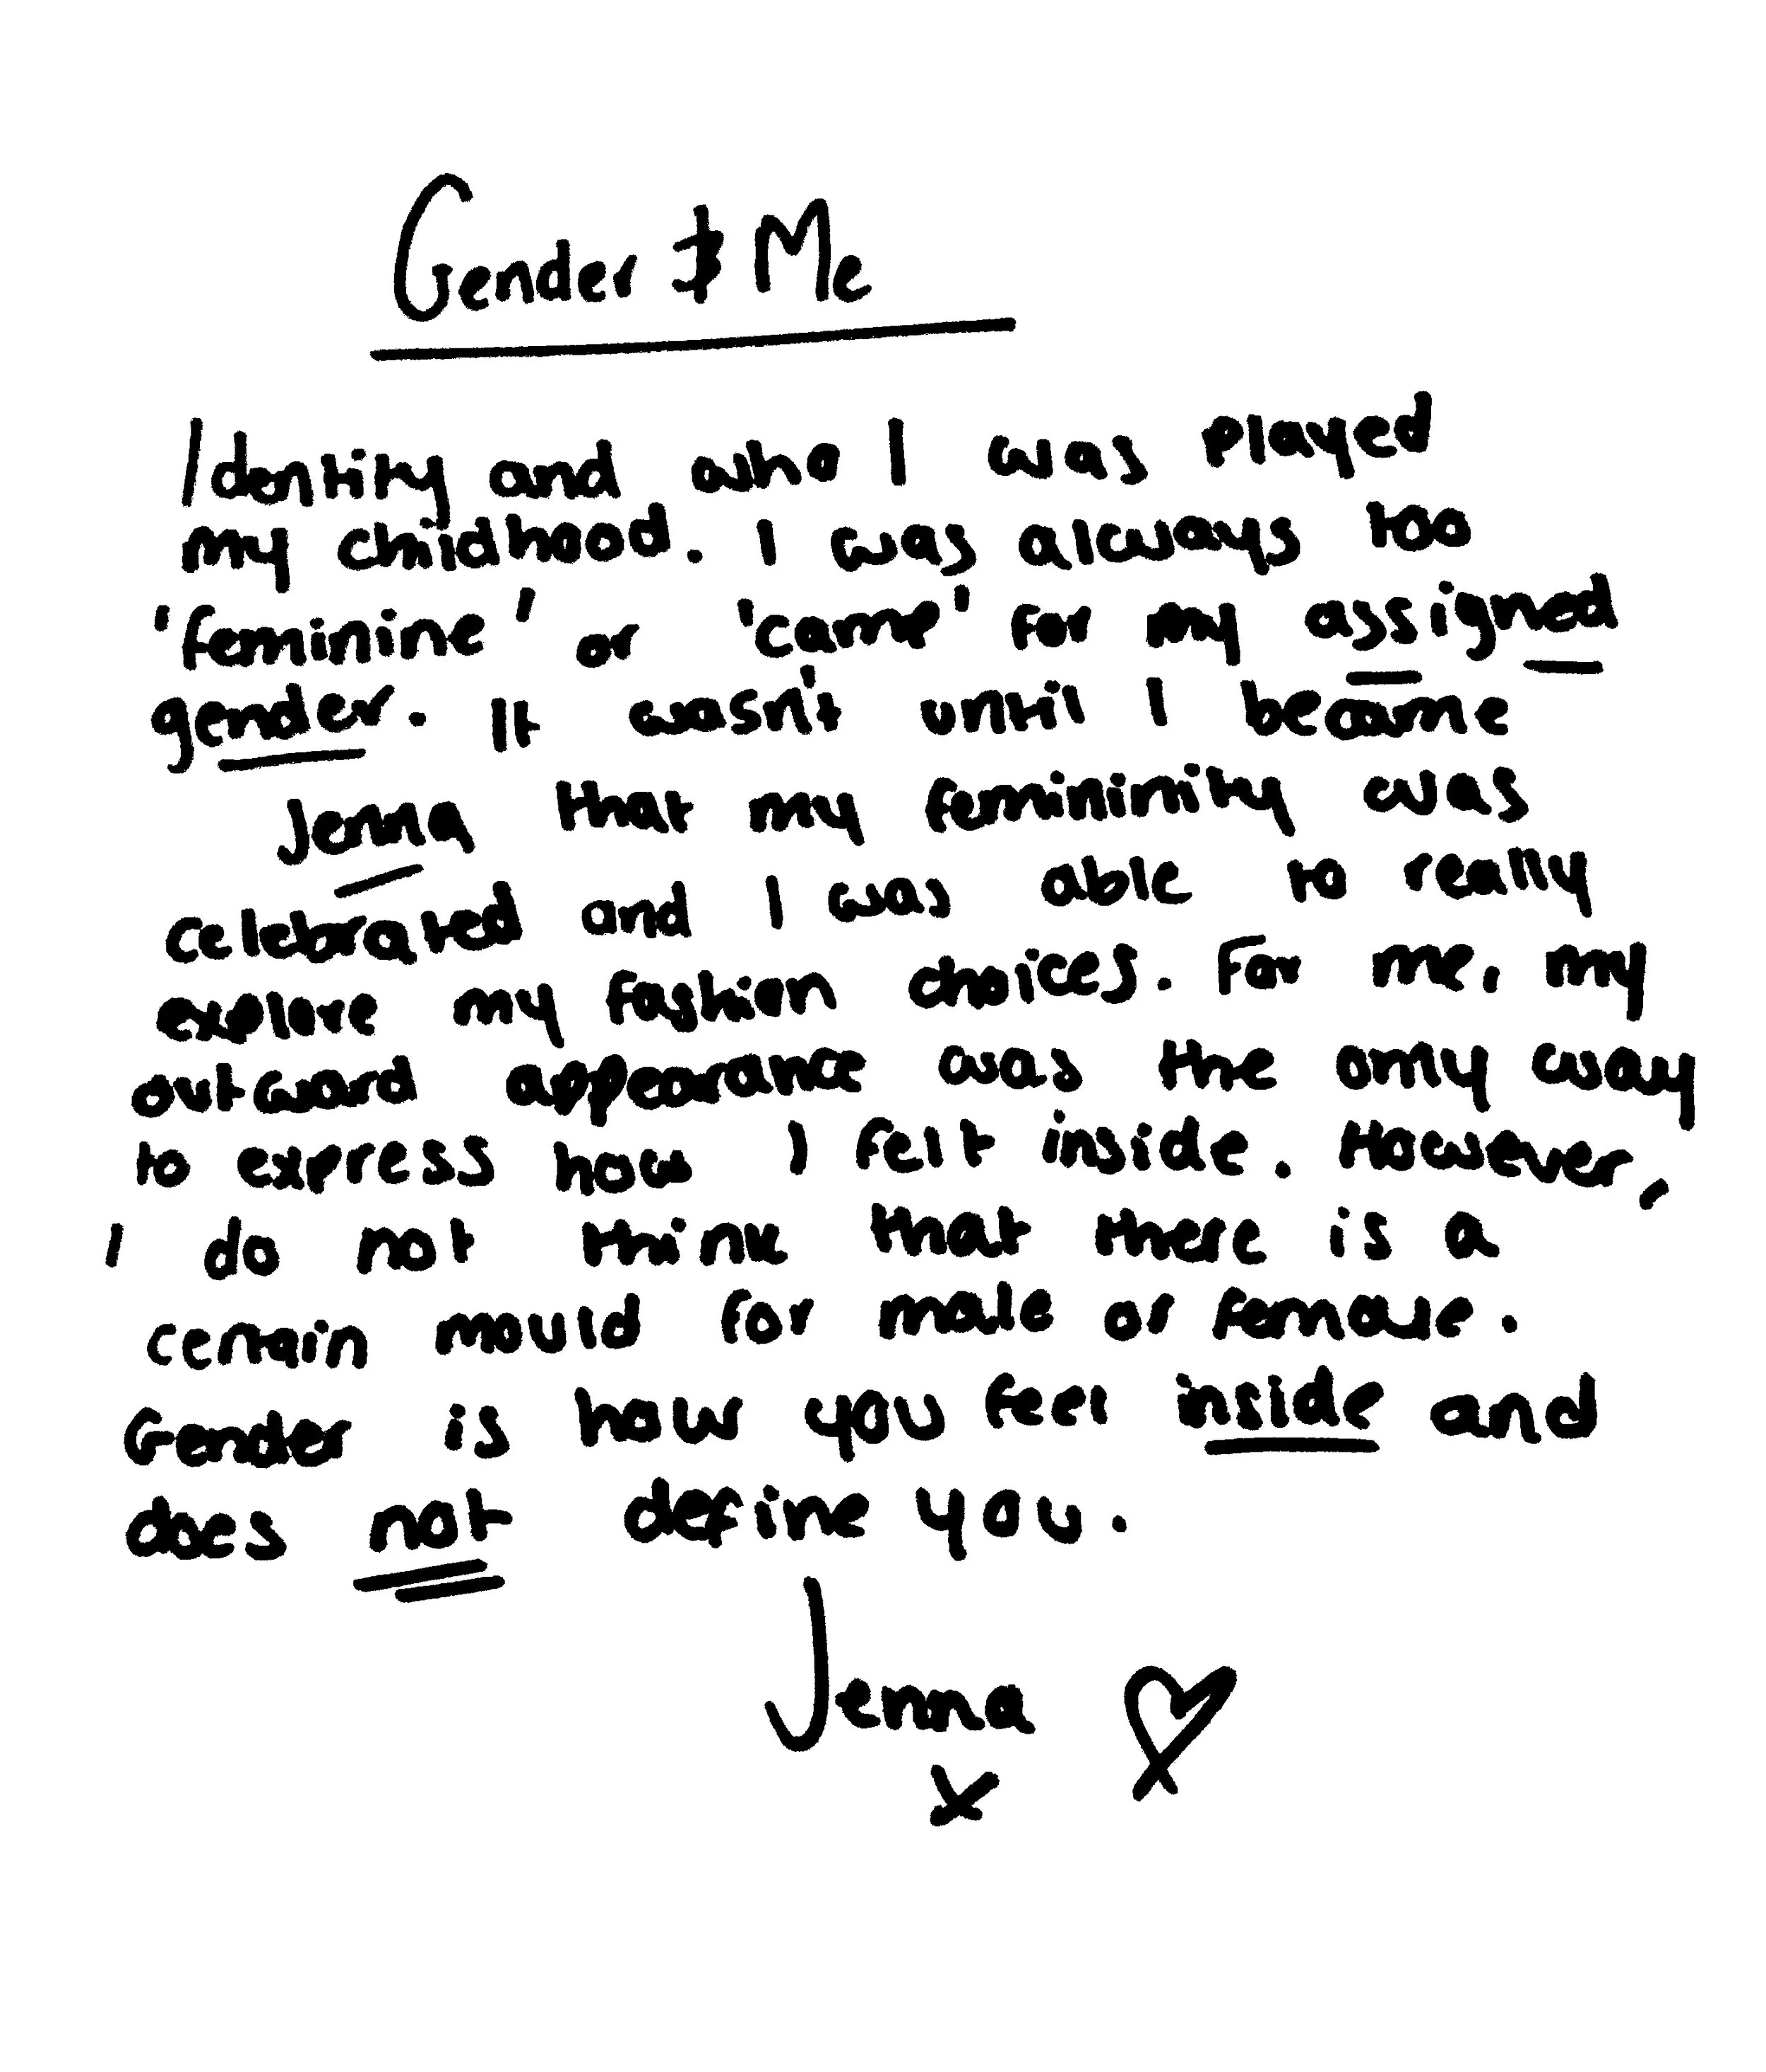 Gender & Me
Identity and who I was played
my childhood. I was always too
'feminine' or 'camp' for my assigned
gender. It wasn't until I became
Jenna that my femininity was
celebrated and I was able to really
explore my fashion choices. For me, my
outward appearance was the only way
to express how I felt inside. However,
I do not think that there is a
certain mould for male or female.
Gender is how you feel inside and
does not define you.
Jenna
x